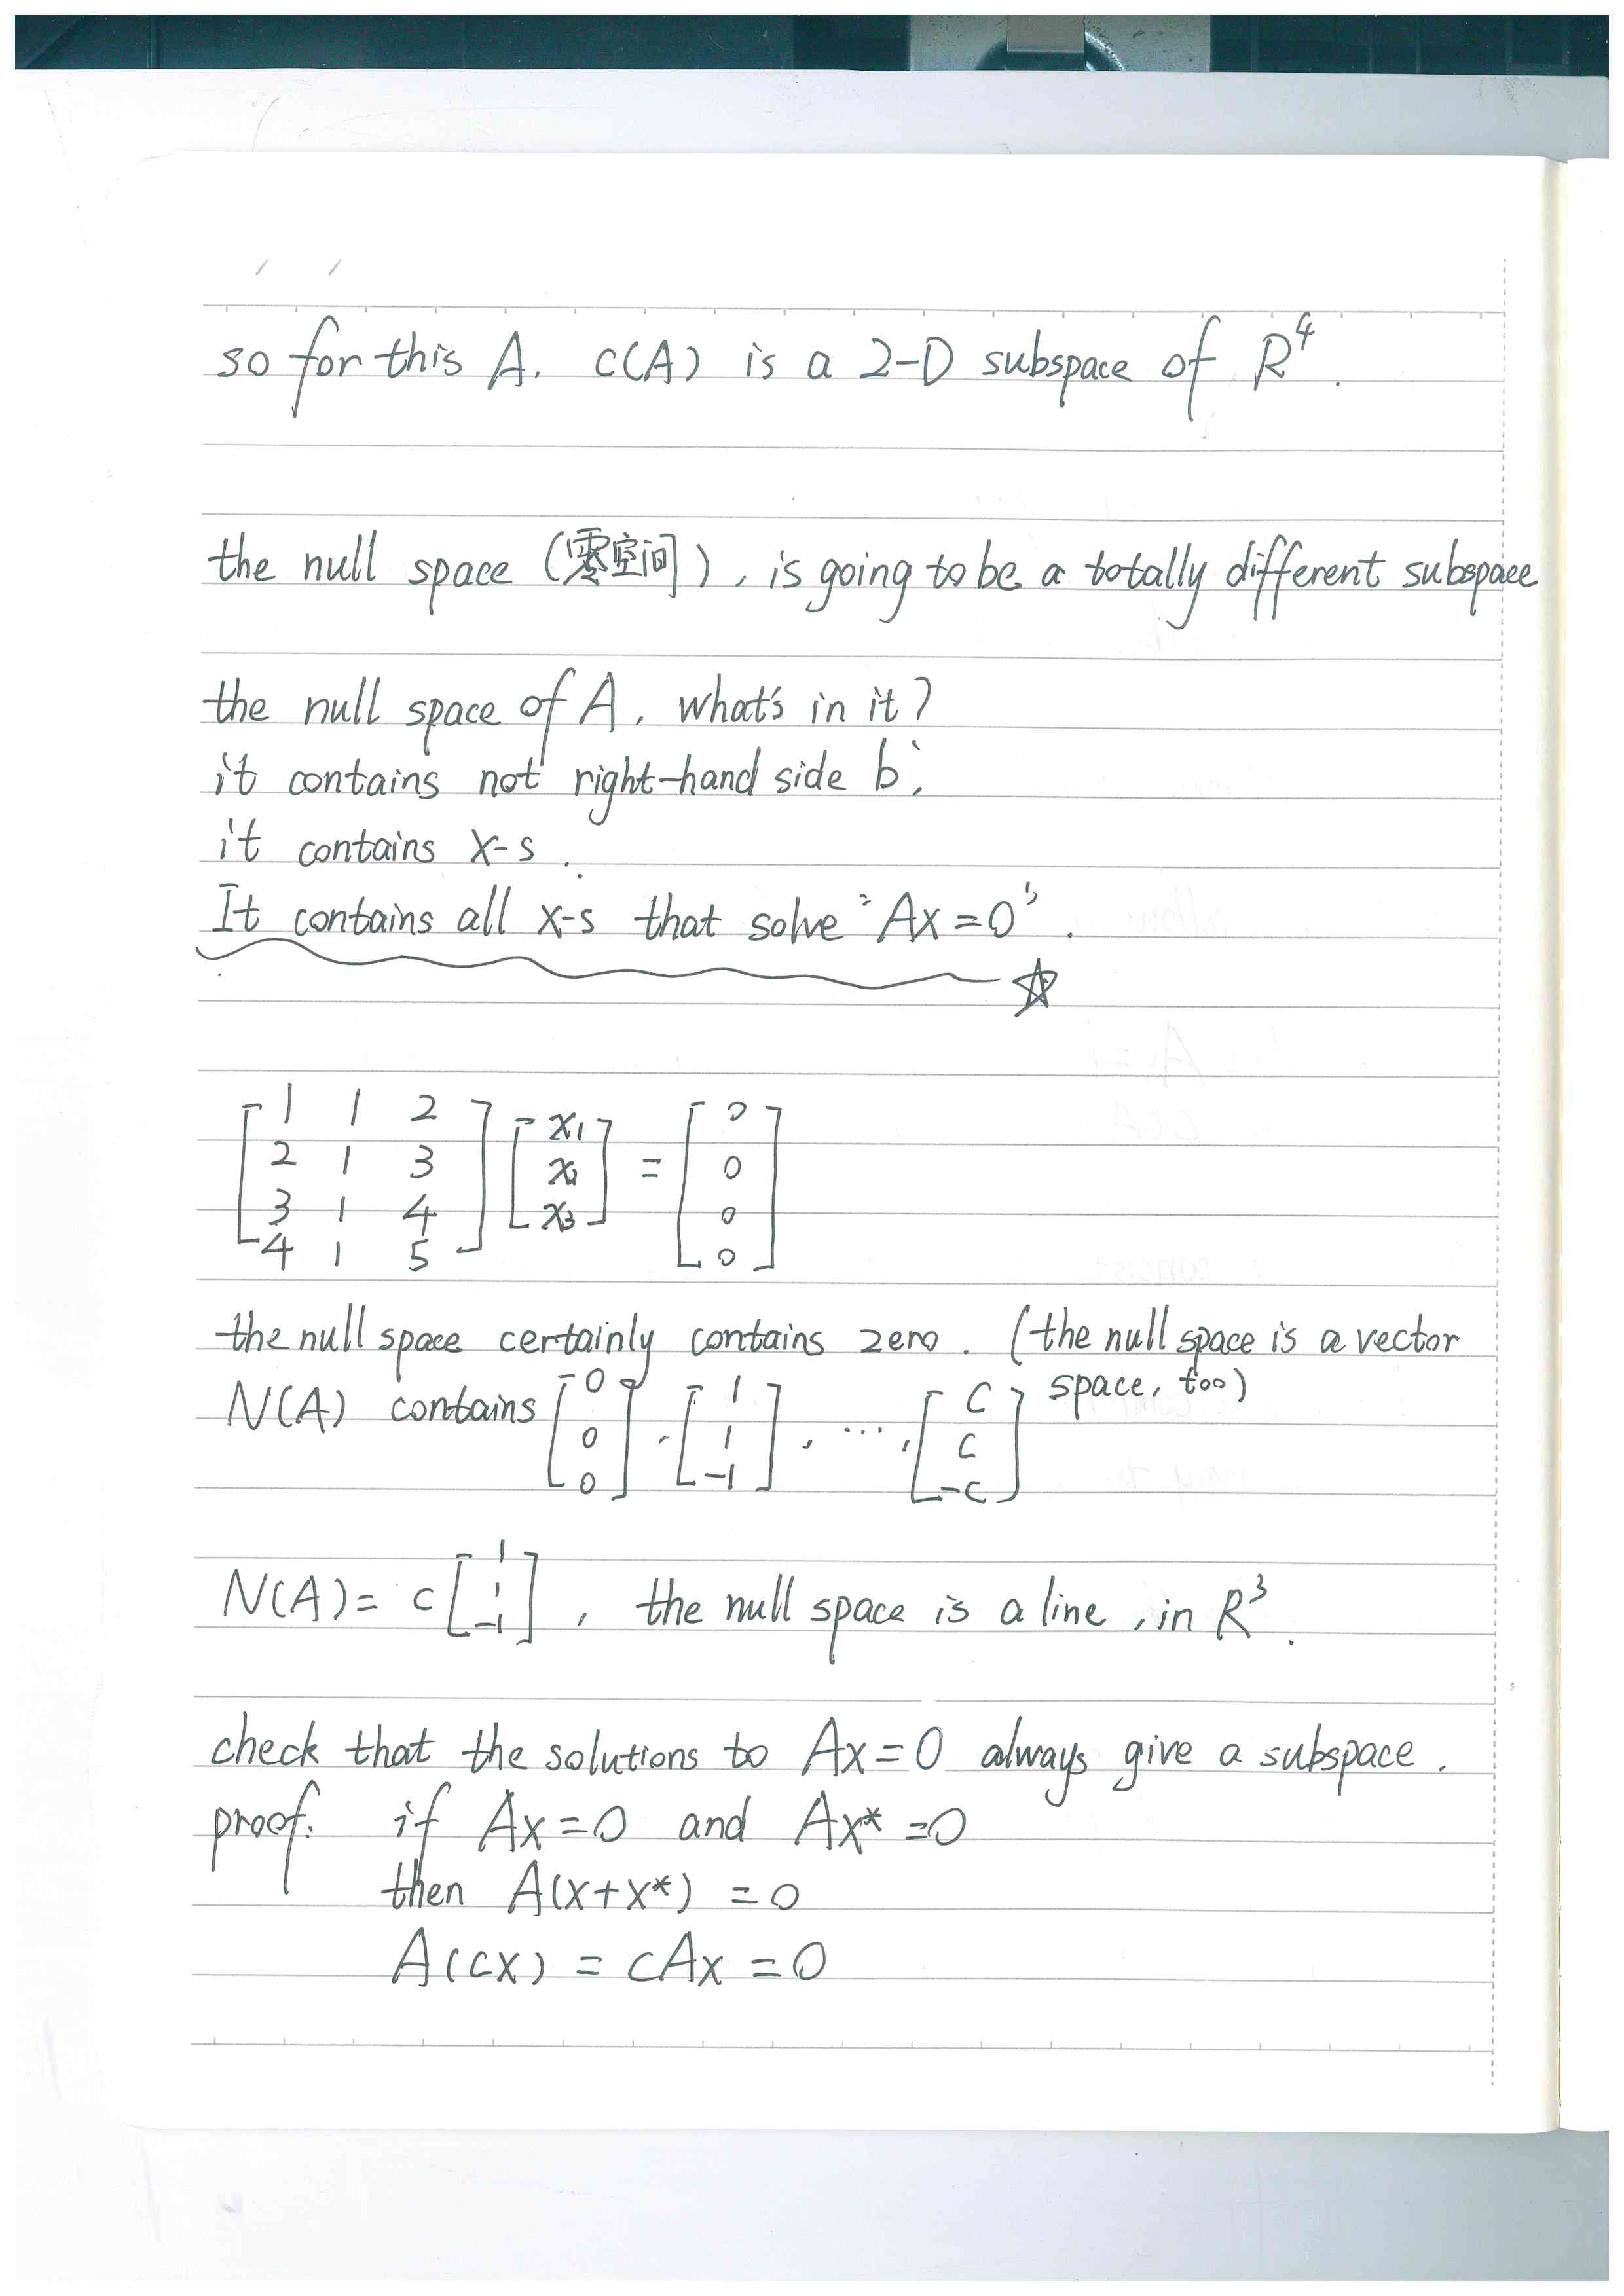 so for this A. C(A) is a 2-D subspace of R⁴.
the null space (零空间), is going to be a totally different subspace
the null space of A, what's in it?
it contains not right-hand side b.
it contains x-s.
It contains all x-s that solve "Ax=0".
[1 1 2; 2 1 3; 3 1 4; 4 1 5] [x₁; x₂; x₃] = [0; 0; 0; 0]
the null space certainly contains zero. (the null space is a vector space, too)
N(A) contains [0; 0; 0], [1; 1; -1], ..., [C; C; -C]
N(A) = c[1; 1; -1], the null space is a line, in R³.
check that the solutions to Ax=0 always give a subspace.
proof: if Ax=0 and Ax*=0
then A(x+x*) = 0
A(cx) = cAx = 0